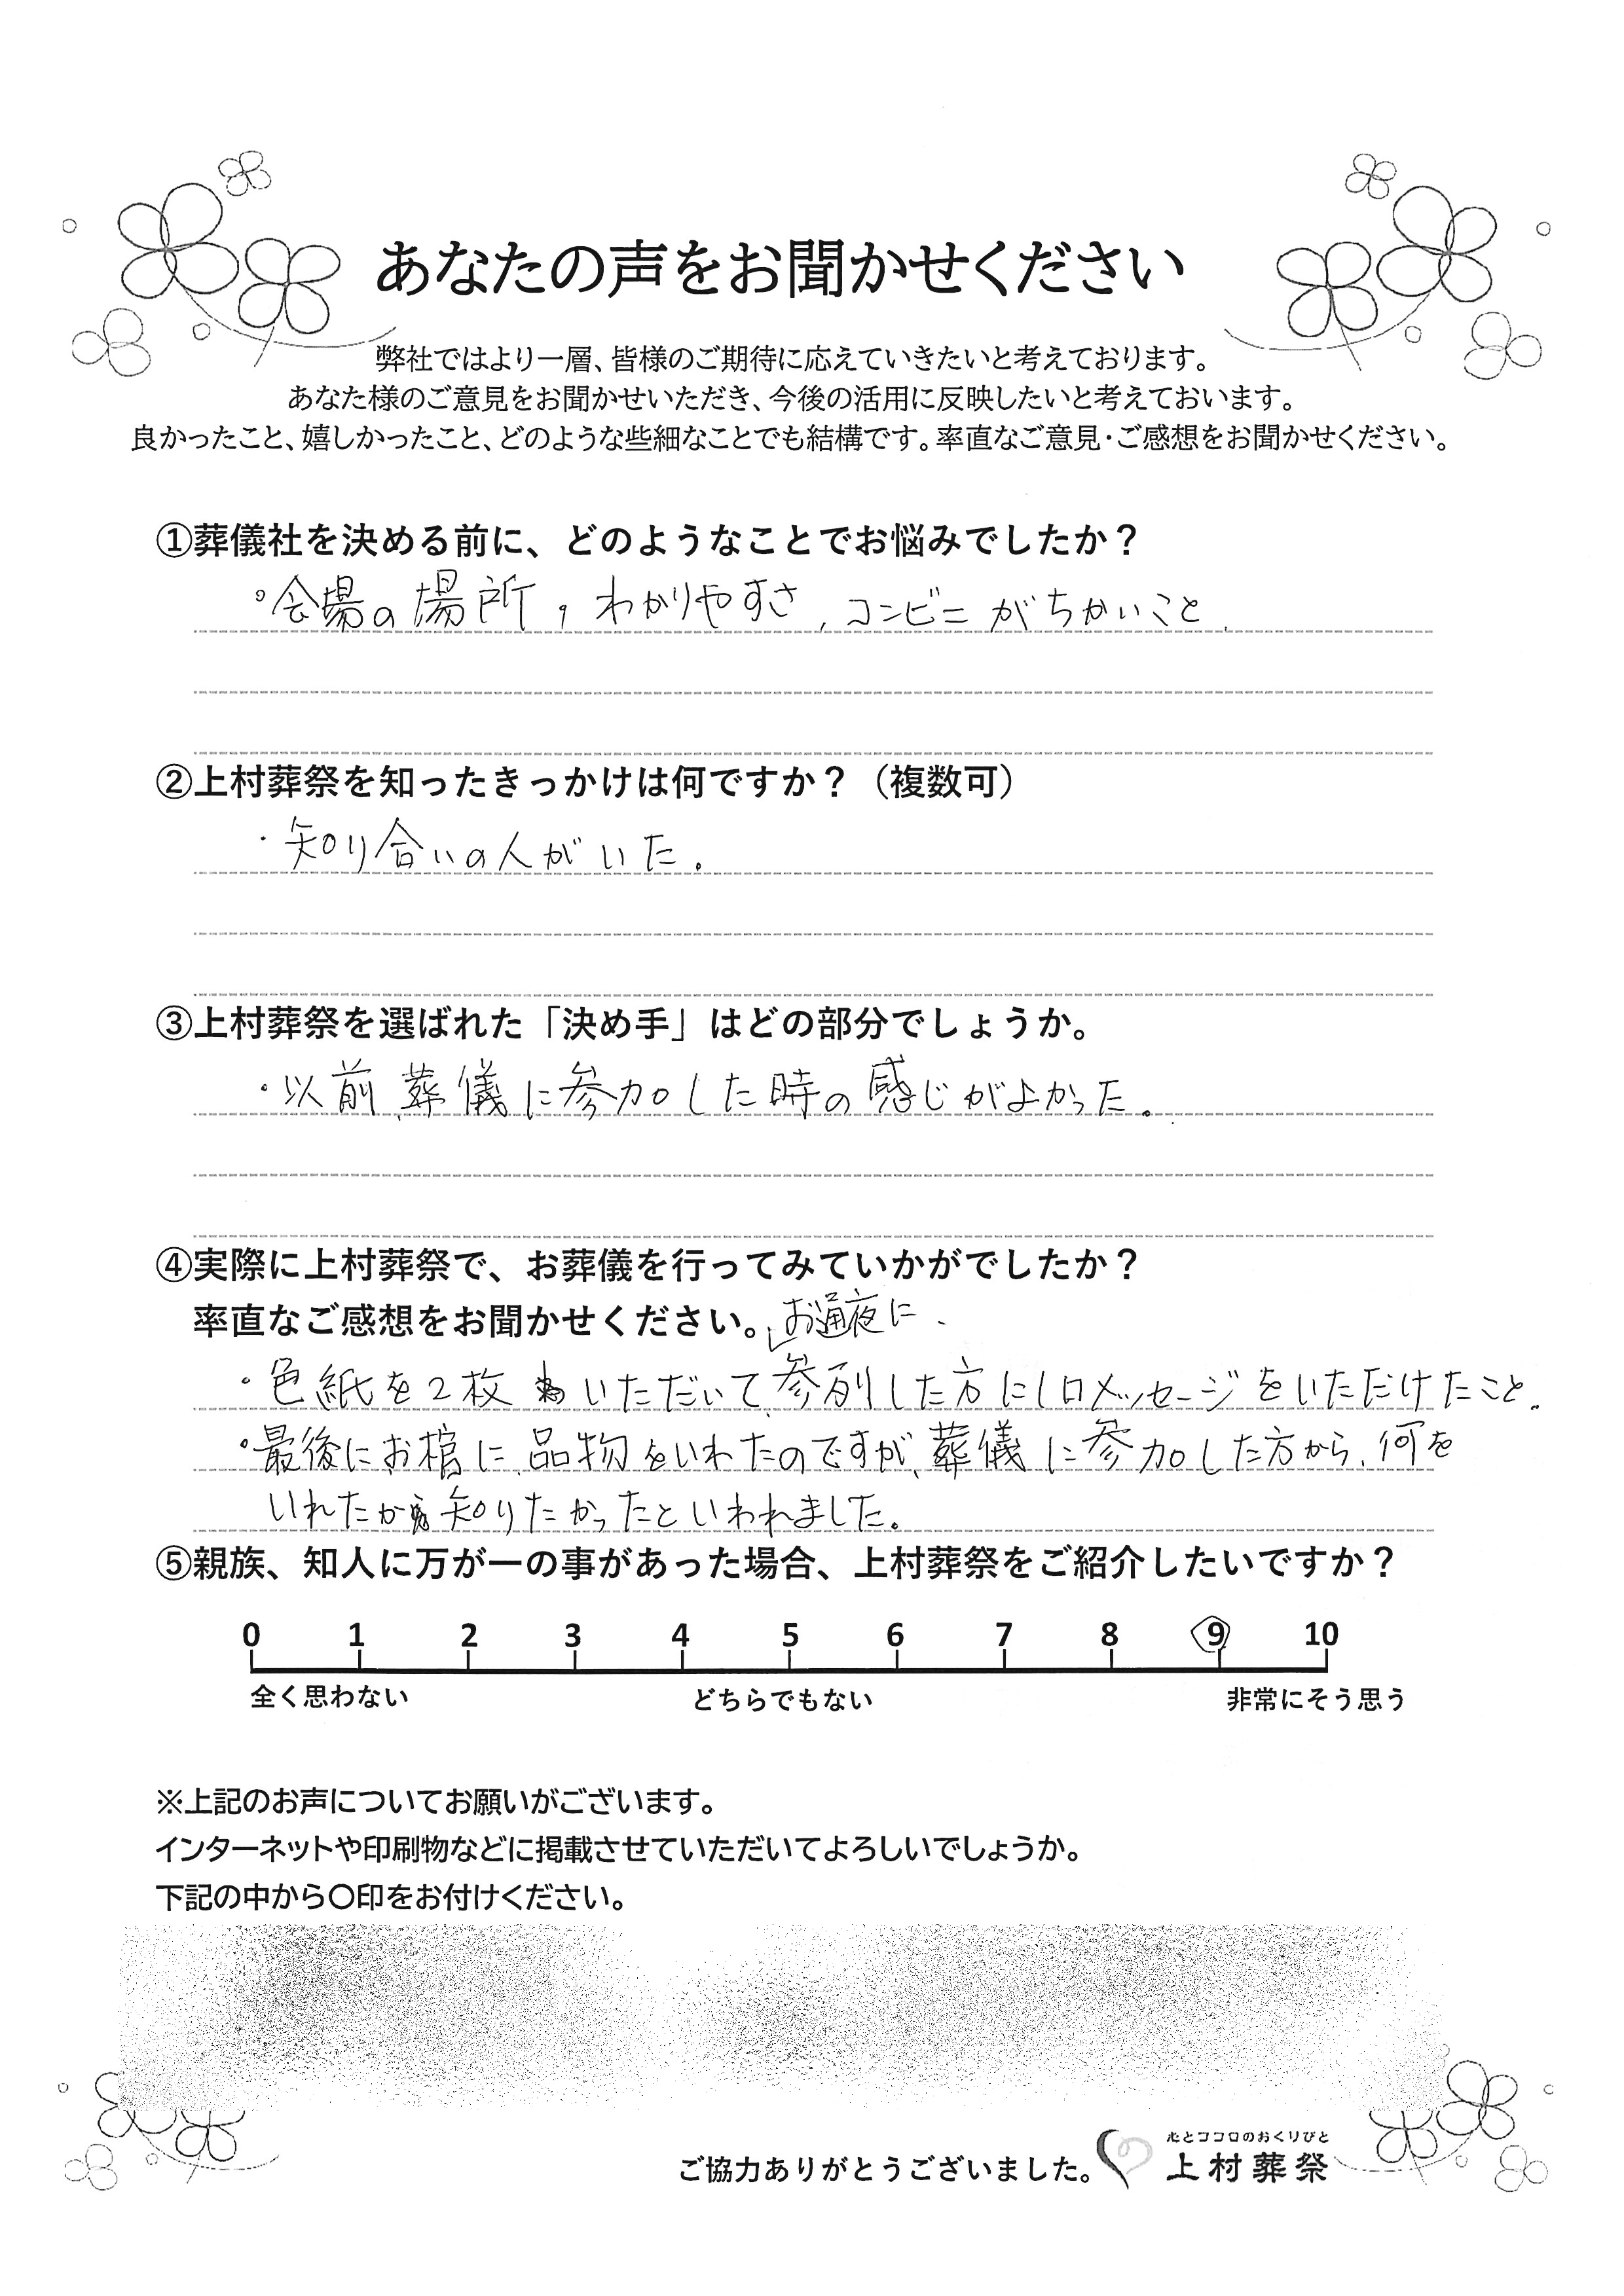 あなたの声をお聞かせください
弊社ではより一層、皆様のご期待に応えていきたいと考えております。
あなた様のご意見をお聞かせいただき、今後の活用に反映したいと考えておいます。
良かったこと、嬉しかったこと、どのような些細なことでも結構です。率直なご意見・ご感想をお聞かせください。
①葬儀社を決める前に、どのようなことでお悩みでしたか？
・会場の場所，わかりやすさ、コンビニがちかいこと、
②上村葬祭を知ったきっかけは何ですか？（複数可）
・知り合いの人がいた。
③上村葬祭を選ばれた「決め手」はどの部分でしょうか。
・以前、葬儀に参加した時の感じがよかった。
④実際に上村葬祭で、お葬儀を行ってみていかがでしたか？
率直なご感想をお聞かせください。
お通夜に
・色紙を2枚いただいて、参列した方に1口メッセージをいただけたこと。
・最後にお棺に、品物をいれたのですが、葬儀に参加した方から、何を
いれたか知りたかったといわれました。
⑤親族、知人に万が一の事があった場合、上村葬祭をご紹介したいですか？
0 1 2 3 4 5 6 7 8 9 10
全く思わない どちらでもない 非常にそう思う
※上記のお声についてお願いがございます。
インターネットや印刷物などに掲載させていただいてよろしいでしょうか。
下記の中から〇印をお付けください。
心とココロのおくりびと
ご協力ありがとうございました。 上村葬祭